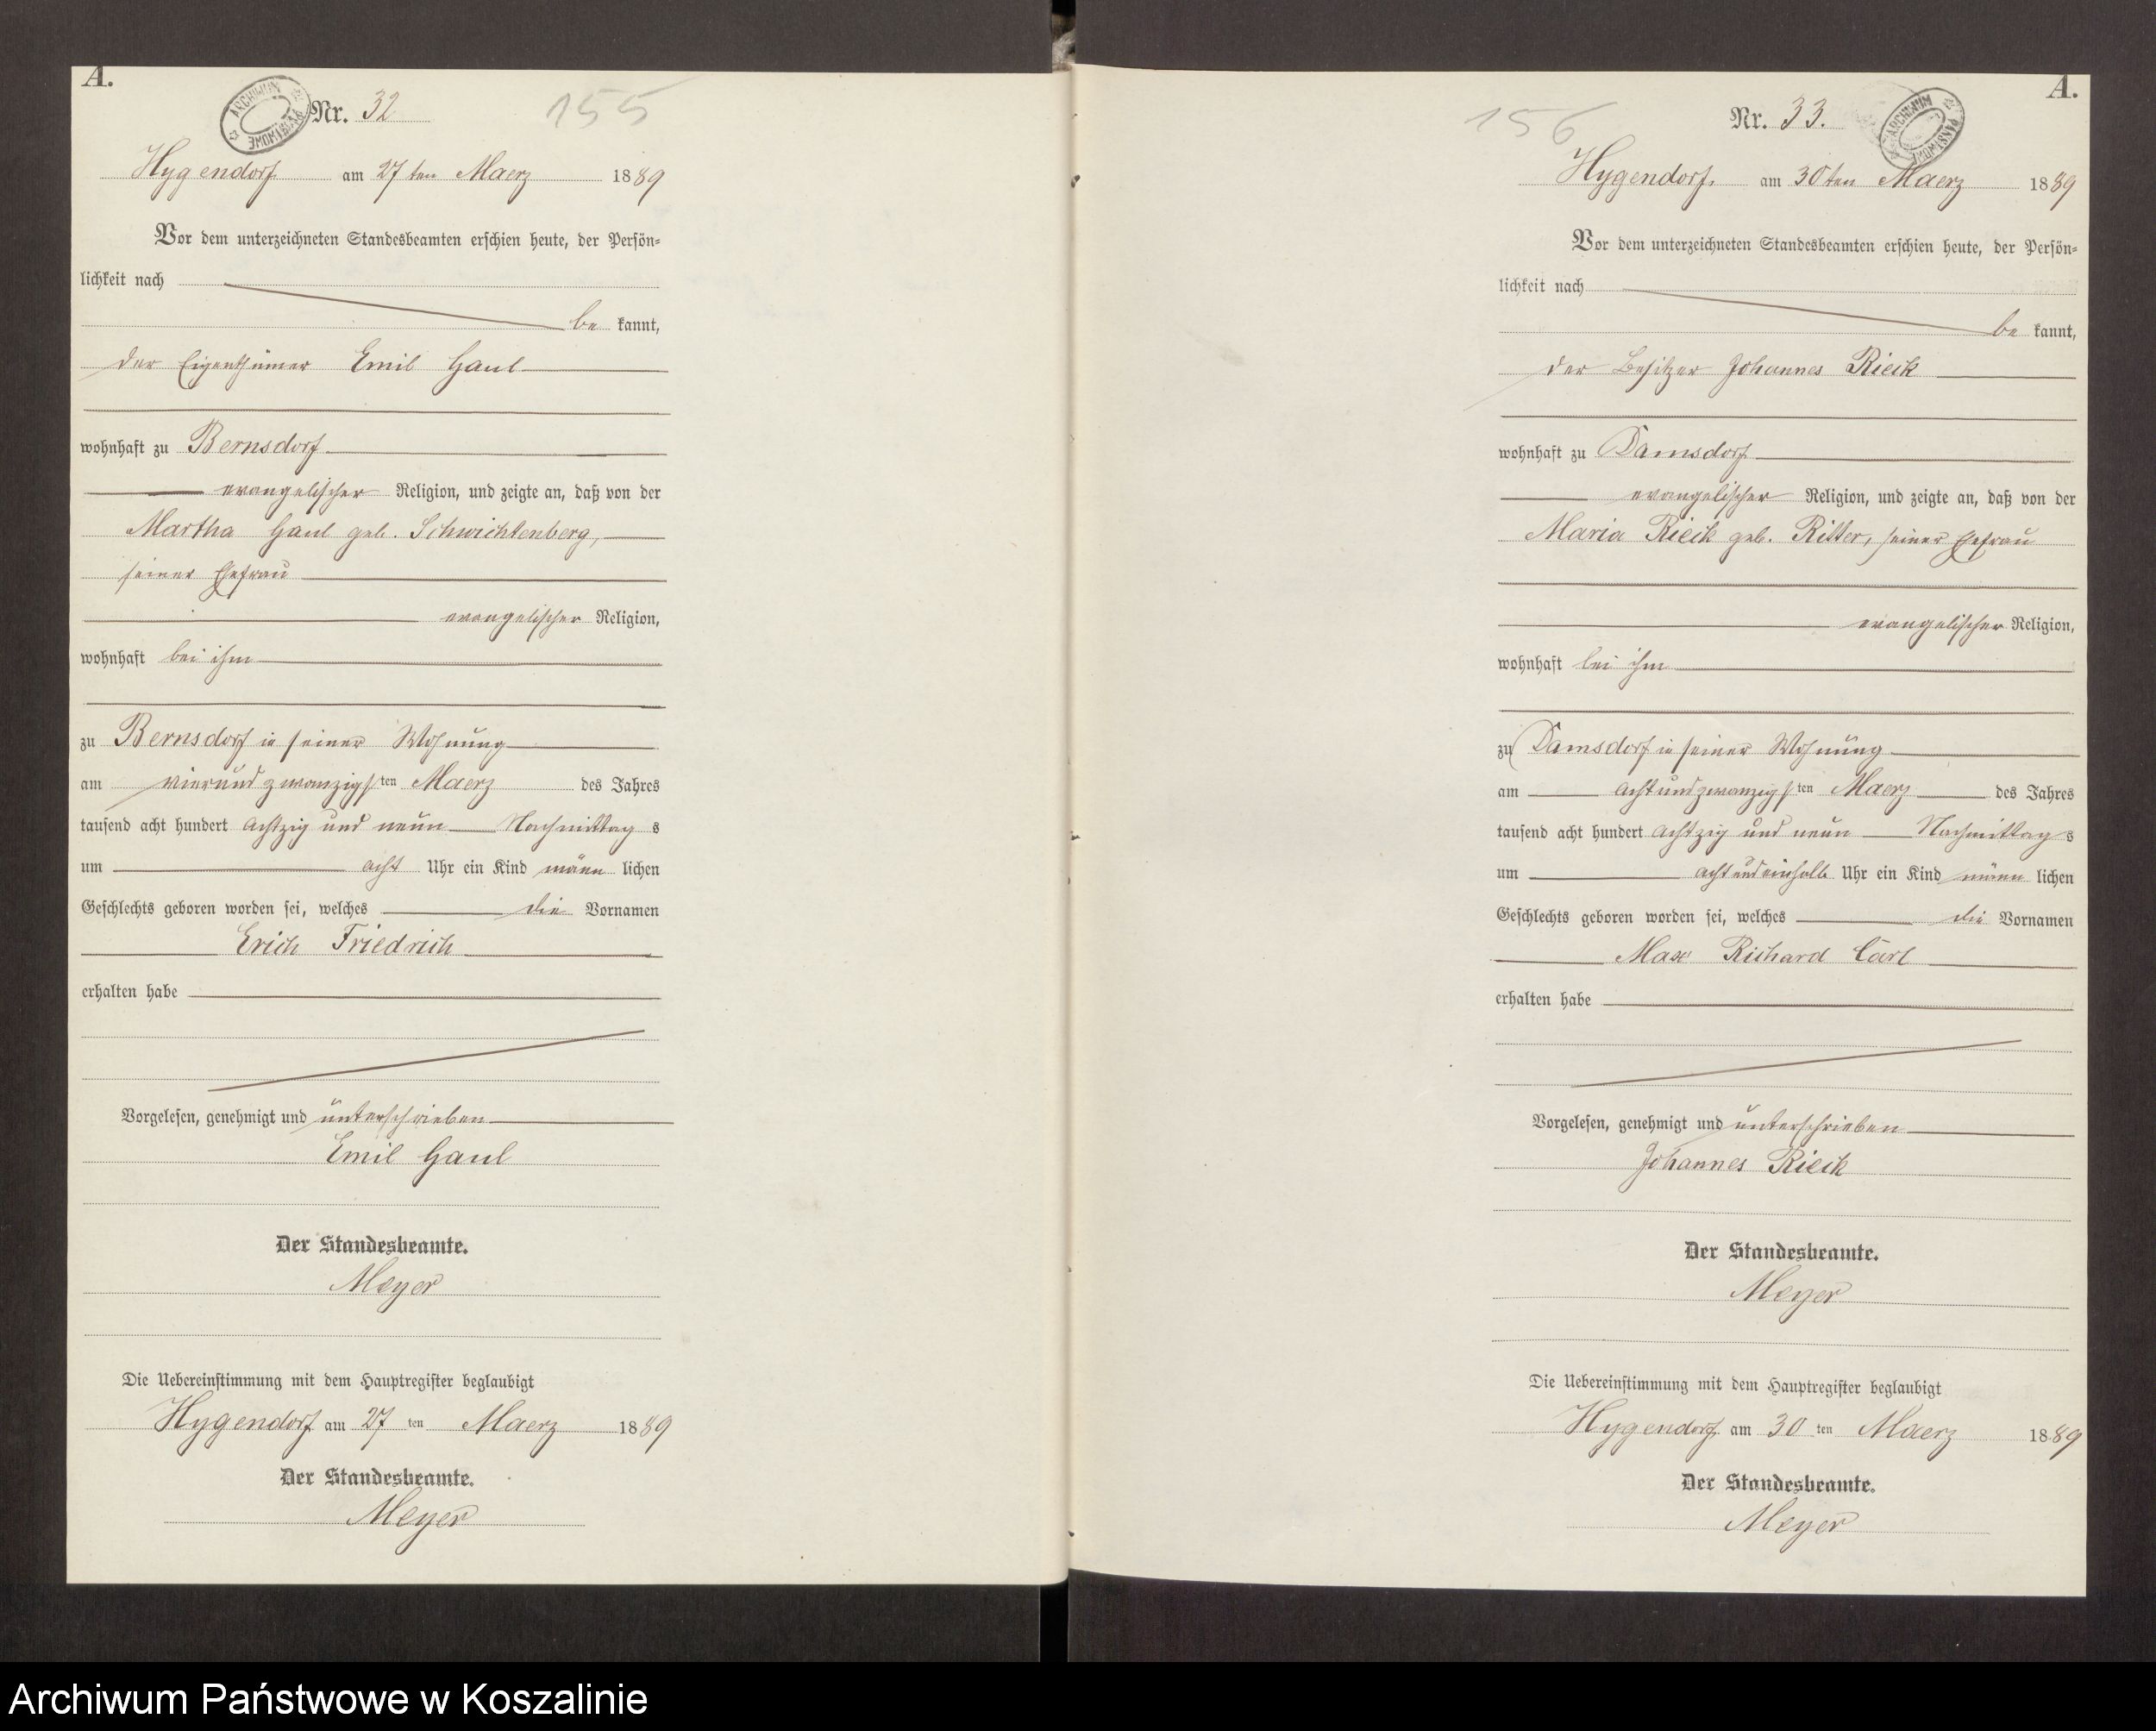 A.
ARCHIWUM PAŃSTWOWE
Nr. 32
155
Hygendorf am 27ten Maerz 1889
Vor dem unterzeichneten Standesbeamten erschien heute, der Persön-
lichkeit nach
be kannt,
der Eigenthümer Emil Gaul
wohnhaft zu Bernsdorf
evangelischer Religion, und zeigte an, daß von der
Martha Gaul geb. Schwichtenberg,
seiner Ehefrau
evangelischer Religion,
wohnhaft bei ihm
zu Bernsdorf in seiner Wohnung
am vierundzwanzigsten Maerz des Jahres
tausend acht hundert achtzig und neun Nachmittag s
um acht Uhr ein Kind männ lichen
Geschlechts geboren worden sei, welches die Vornamen
Erich Friedrich
erhalten habe
Vorgelesen, genehmigt und unterschrieben
Emil Gaul
Der Standesbeamte.
Meyer
Die Uebereinstimmung mit dem Hauptregister beglaubigt
Hygendorf am 27 ten Maerz 1889
Der Standesbeamte.
Meyer
A.
156
Nr. 33.
ARCHIWUM PAŃSTWOWE
Hygendorf. am 30ten Maerz 1889
Vor dem unterzeichneten Standesbeamten erschien heute, der Persön-
lichkeit nach
be kannt,
der Besitzer Johannes Rieck
wohnhaft zu Damsdorf
evangelischer Religion, und zeigte an, daß von der
Maria Rieck geb. Ritter, seiner Ehefrau
evangelischer Religion,
wohnhaft bei ihm
zu Damsdorf in seiner Wohnung
am achtundzwanzigsten Maerz des Jahres
tausend acht hundert achtzig und neun Nachmittag s
um acht und einhalb Uhr ein Kind männ lichen
Geschlechts geboren worden sei, welches die Vornamen
Max Richard Carl
erhalten habe
Vorgelesen, genehmigt und unterschrieben
Johannes Rieck
Der Standesbeamte.
Meyer
Die Uebereinstimmung mit dem Hauptregister beglaubigt
Hygendorf am 30 ten Maerz 1889
Der Standesbeamte.
Meyer
Archiwum Państwowe w Koszalinie